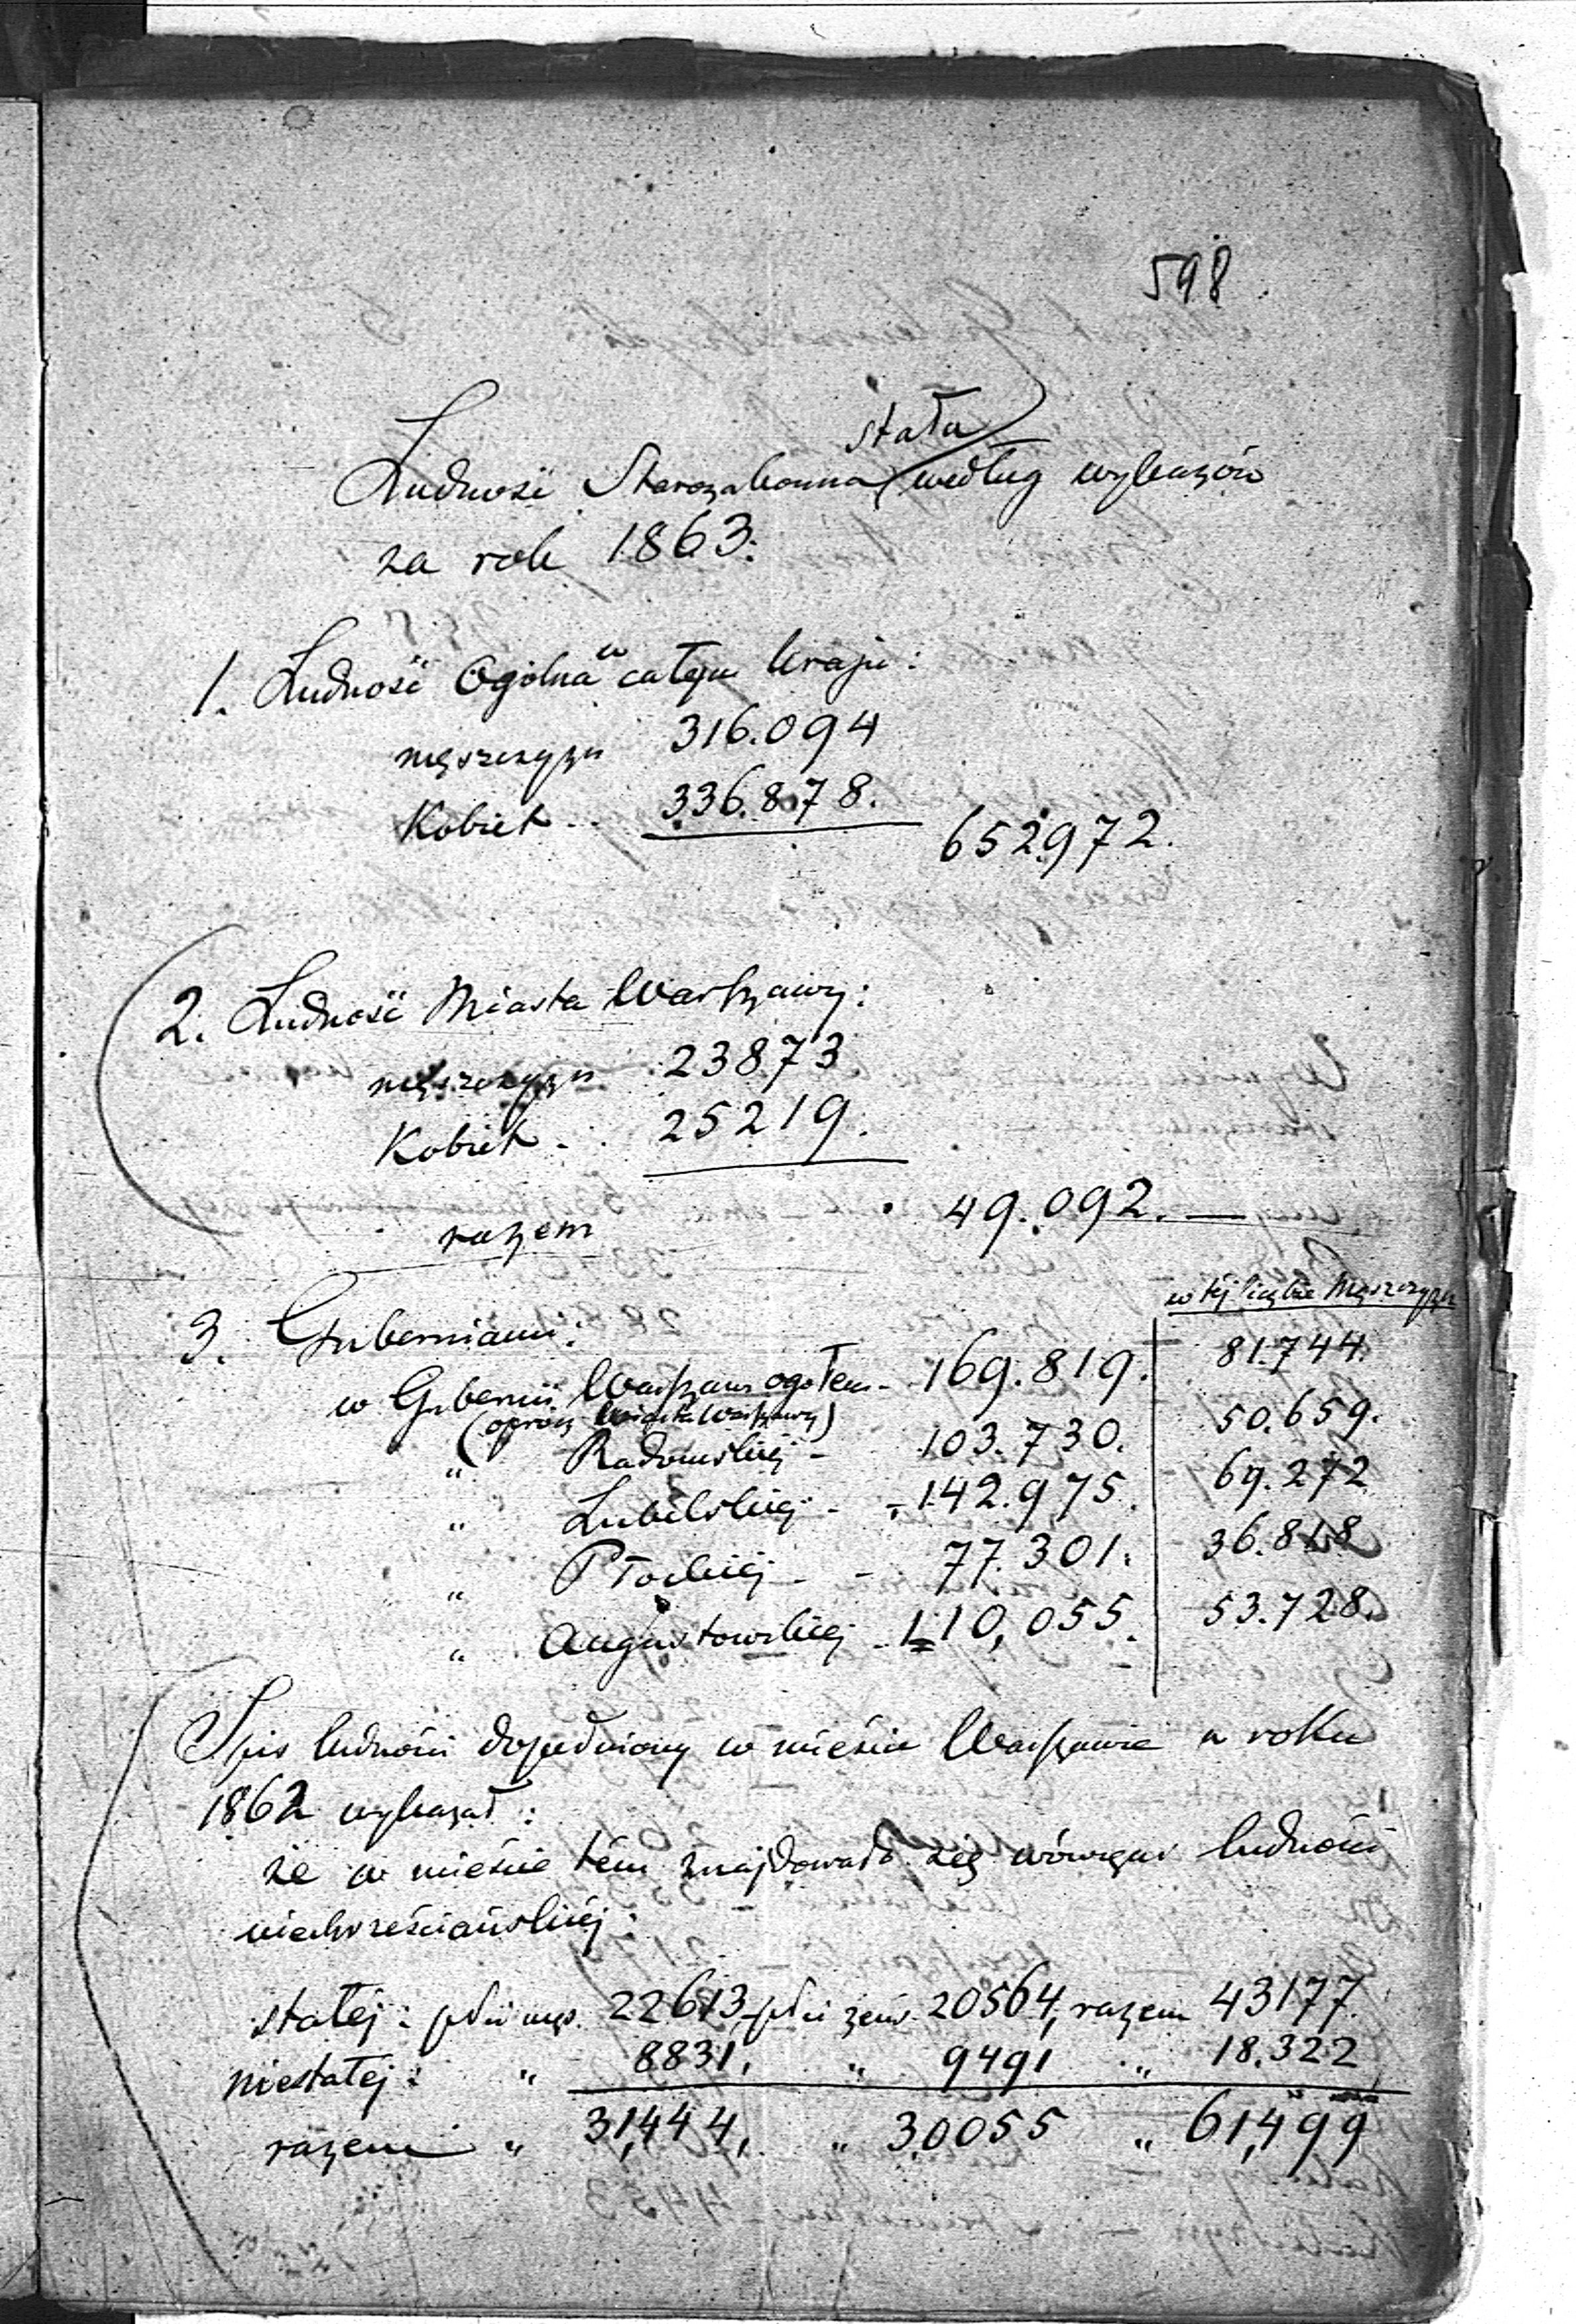 598
stała
Ludność Starozakonna według wykazów
za rok 1863.
1. Ludność Ogólna w całym kraju:
mężczyzn 316.094
Kobiet .. 336.878.
652972.
2. Ludność Miasta Warszawy:
mężczyzn 23873
Kobiet . . 25219.
razem . 49.092. —
w tej liczbie Mężczyzn
3. Guberniami:
w Gubernii Warszaws ogółem - 169.819. 81.744.
(oprócz Miasta Warszawy)
" Radomskiej - 103.730. 50.659.
" Lubelskiej - - 142.975. 69.272
" Płockiej - - 77.301. 36.818
" Augustowskiej - 110,055. 53.728.
Spis ludności dopełniony w mieście Warszawie w roku
1862 wykazał:
że w mieście tém znajdowało się wówczas ludności
niechrześciańskiéj:
stałéj: płci męs. 22613, płci żeńs. 20564, razem 43177.
niestałéj: " 8831, " 9491 " 18.322
razem " 31,444, " 30055 " 61,499